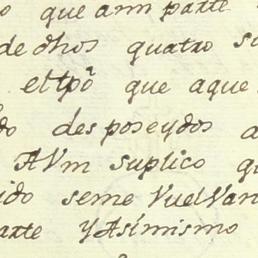 o que ami parte
de dhos quatro su
el tpõ que aque
do desposeydos a
AVm suplico qu
ido seme VuelVan
arte yAsímismo